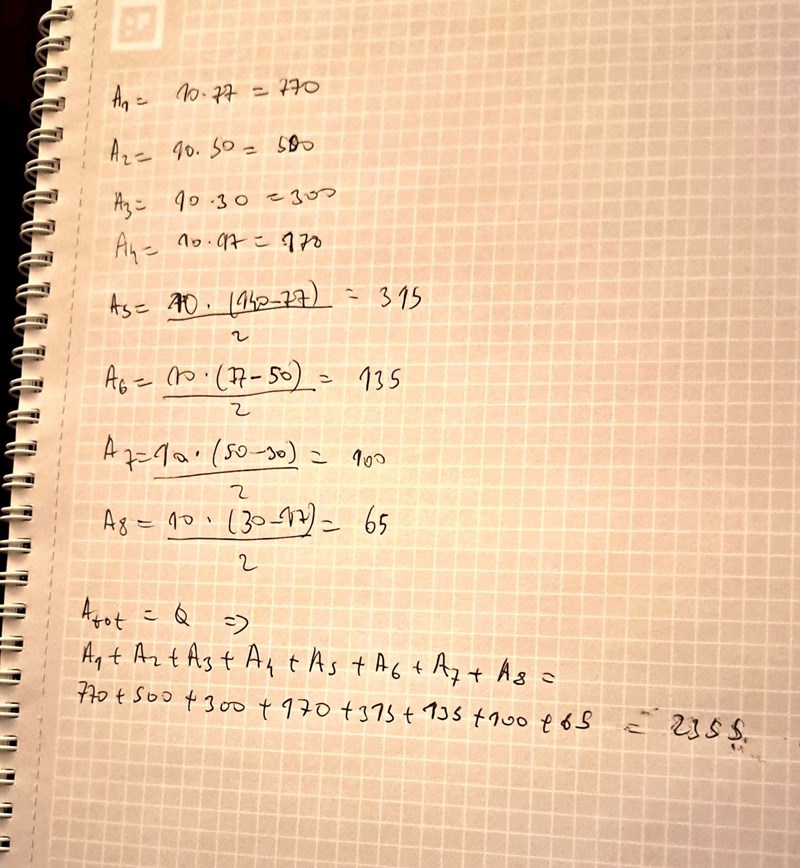 A1 = 10·77 = 770
A2 = 10·50 = 500
A3 = 10·30 = 300
A4 = 10·17 = 170
A5 = 10·(140-77)/2 = 315
A6 = 10·(77-50)/2 = 135
A7 = 10·(50-30)/2 = 100
A8 = 10·(30-17)/2 = 65
Atot = Q =>
A1 + A2 + A3 + A4 + A5 + A6 + A7 + A8 =
770 + 500 + 300 + 170 + 315 + 135 + 100 + 65 = 2355